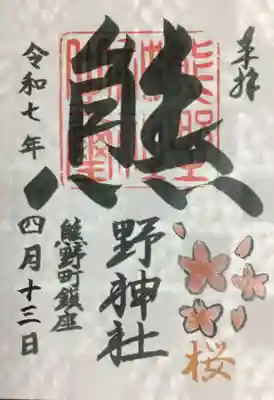 奉拝
熊野神社
熊野町鎮座
令和七年四月十三日
桜